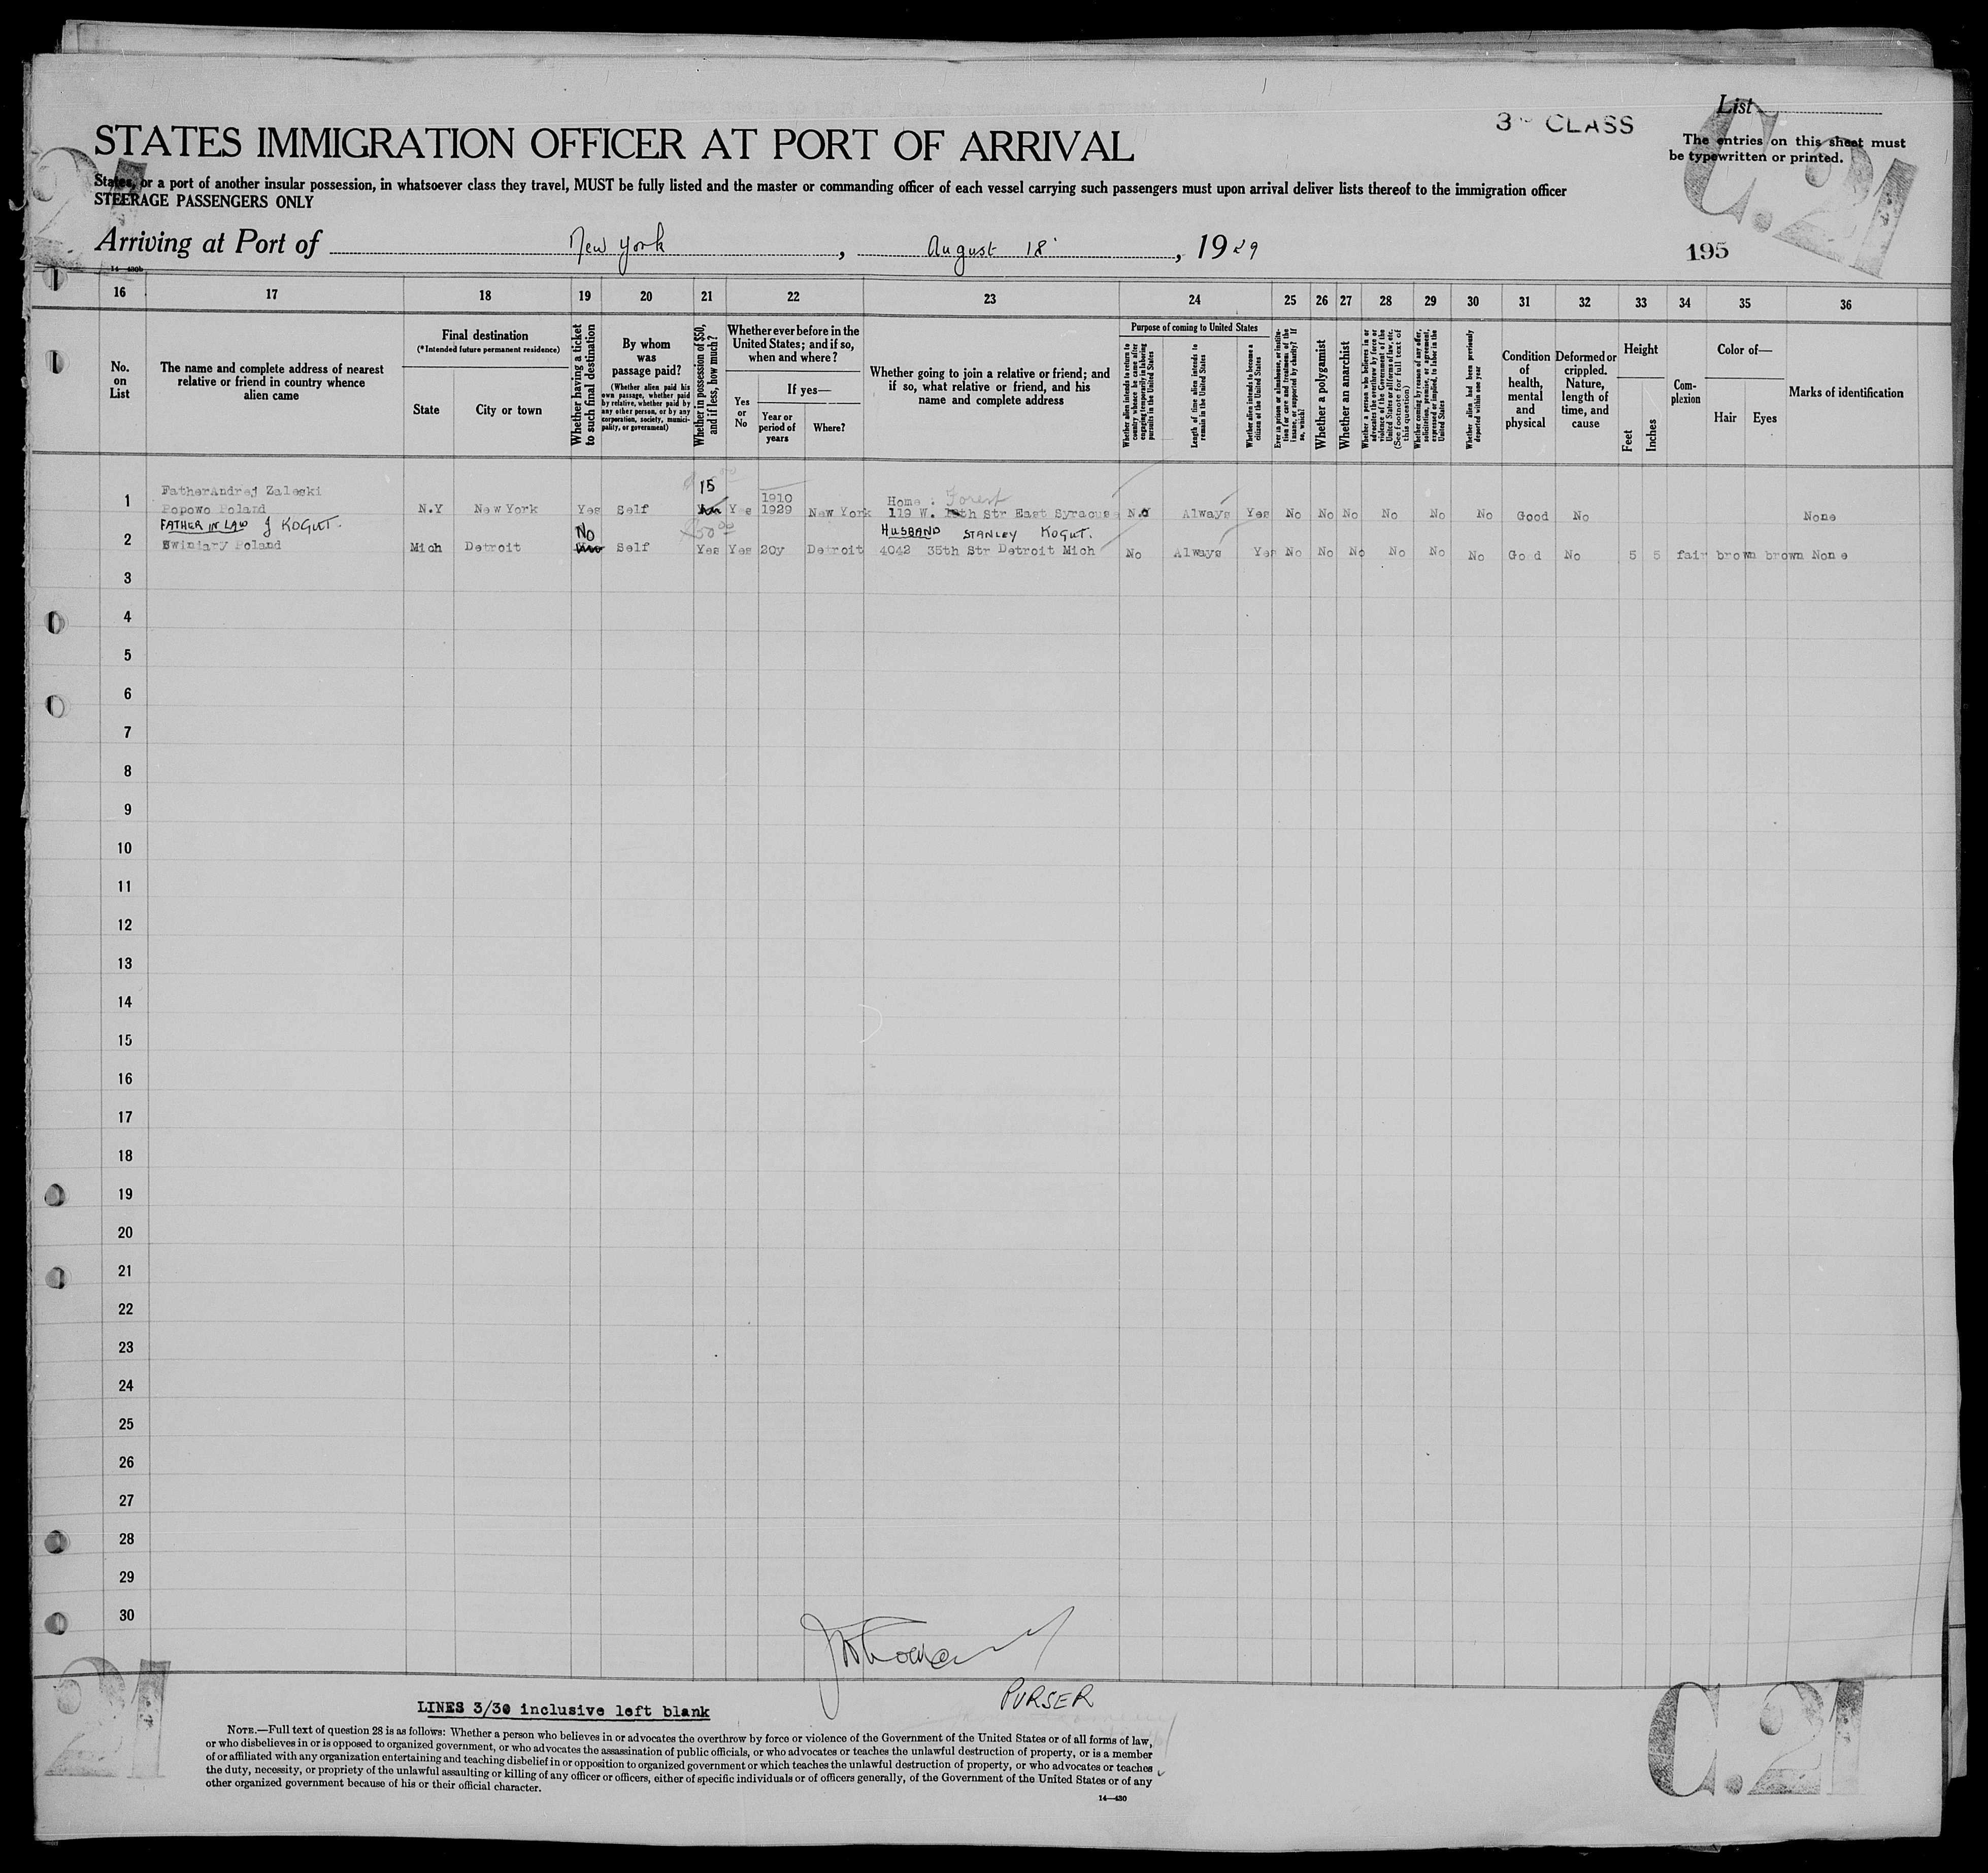 List
3rd CLASS
The entries on this sheet must
be typewritten or printed.
C.21
STATES IMMIGRATION OFFICER AT PORT OF ARRIVAL
States, or a port of another insular possession, in whatsoever class they travel, MUST be fully listed and the master or commanding officer of each vessel carrying such passengers must upon arrival deliver lists thereof to the immigration officer
STEERAGE PASSENGERS ONLY
Arriving at Port of New York, August 18, 1929
195
14—430b
16 17 18 19 20 21 22 23 24 25 26 27 28 29 30 31 32 33 34 35 36
No. on List
The name and complete address of nearest relative or friend in country whence alien came
Final destination
(*Intended future permanent residence)
State
City or town
Whether having a ticket to such final destination
By whom was passage paid?
(Whether alien paid his own passage, whether paid by relative, whether paid by any other person, or by any corporation, society, municipality, or government)
Whether in possession of $50, and if less, how much?
Whether ever before in the United States; and if so, when and where?
Yes or No
If yes—
Year or period of years
Where?
Whether going to join a relative or friend; and if so, what relative or friend, and his name and complete address
Purpose of coming to United States
Whether alien intends to return to country whence he came after engaging temporarily in laboring pursuits in the United States
Length of time alien intends to remain in the United States
Whether alien intends to become a citizen of the United States
Ever in prison or almshouse, or institution for care and treatment of the insane, or supported by charity? If so, which?
Whether a polygamist
Whether an anarchist
Whether a person who believes in or advocates the overthrow by force or violence of the Government of the United States or all forms of law, etc. (See footnote for full text of this question)
Whether coming by reason of any offer, solicitation, promise, or agreement, expressed or implied, to labor in the United States
Whether alien had been previously deported within one year
Condition of health, mental and physical
Deformed or crippled. Nature, length of time, and cause
Height
Feet
Inches
Complexion
Color of—
Hair
Eyes
Marks of identification
15
Father Andrej Zaleski 1910 Home: Forest
1 Popowo Poland N.Y New York Yes Self Yes 1929 New York 119 W. Str East Syracuse N.O Always Yes No No No No No No Good No None
FATHER IN LAW J KOGUT. NO $50.00 HUSBAND STANLEY KOGUT.
2 Swiniary Poland Mich Detroit Self Yes Yes 20y Detroit 4042 35th Str Detroit Mich No Always Yes No No No No No No Good No 5 5 fair brown brown None
3
4
5
6
7
8
9
10
11
12
13
14
15
16
17
18
19
20
21
22
23
24
25
26
27
28
29
30
PURSER
LINES 3/30 inclusive left blank
NOTE.—Full text of question 28 is as follows: Whether a person who believes in or advocates the overthrow by force or violence of the Government of the United States or of all forms of law,
or who disbelieves in or is opposed to organized government, or who advocates the assassination of public officials, or who advocates or teaches the unlawful destruction of property, or is a member
of or affiliated with any organization entertaining and teaching disbelief in or opposition to organized government or which teaches the unlawful destruction of property, or who advocates or teaches
the duty, necessity, or propriety of the unlawful assaulting or killing of any officer or officers, either of specific individuals or of officers generally, of the Government of the United States or of any
other organized government because of his or their official character.
14—430
21
C.21